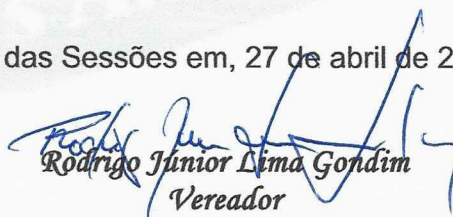 das Sessões em, 27 de abril de 2
Rodrigo Júnior Lima Gondim
Vereador